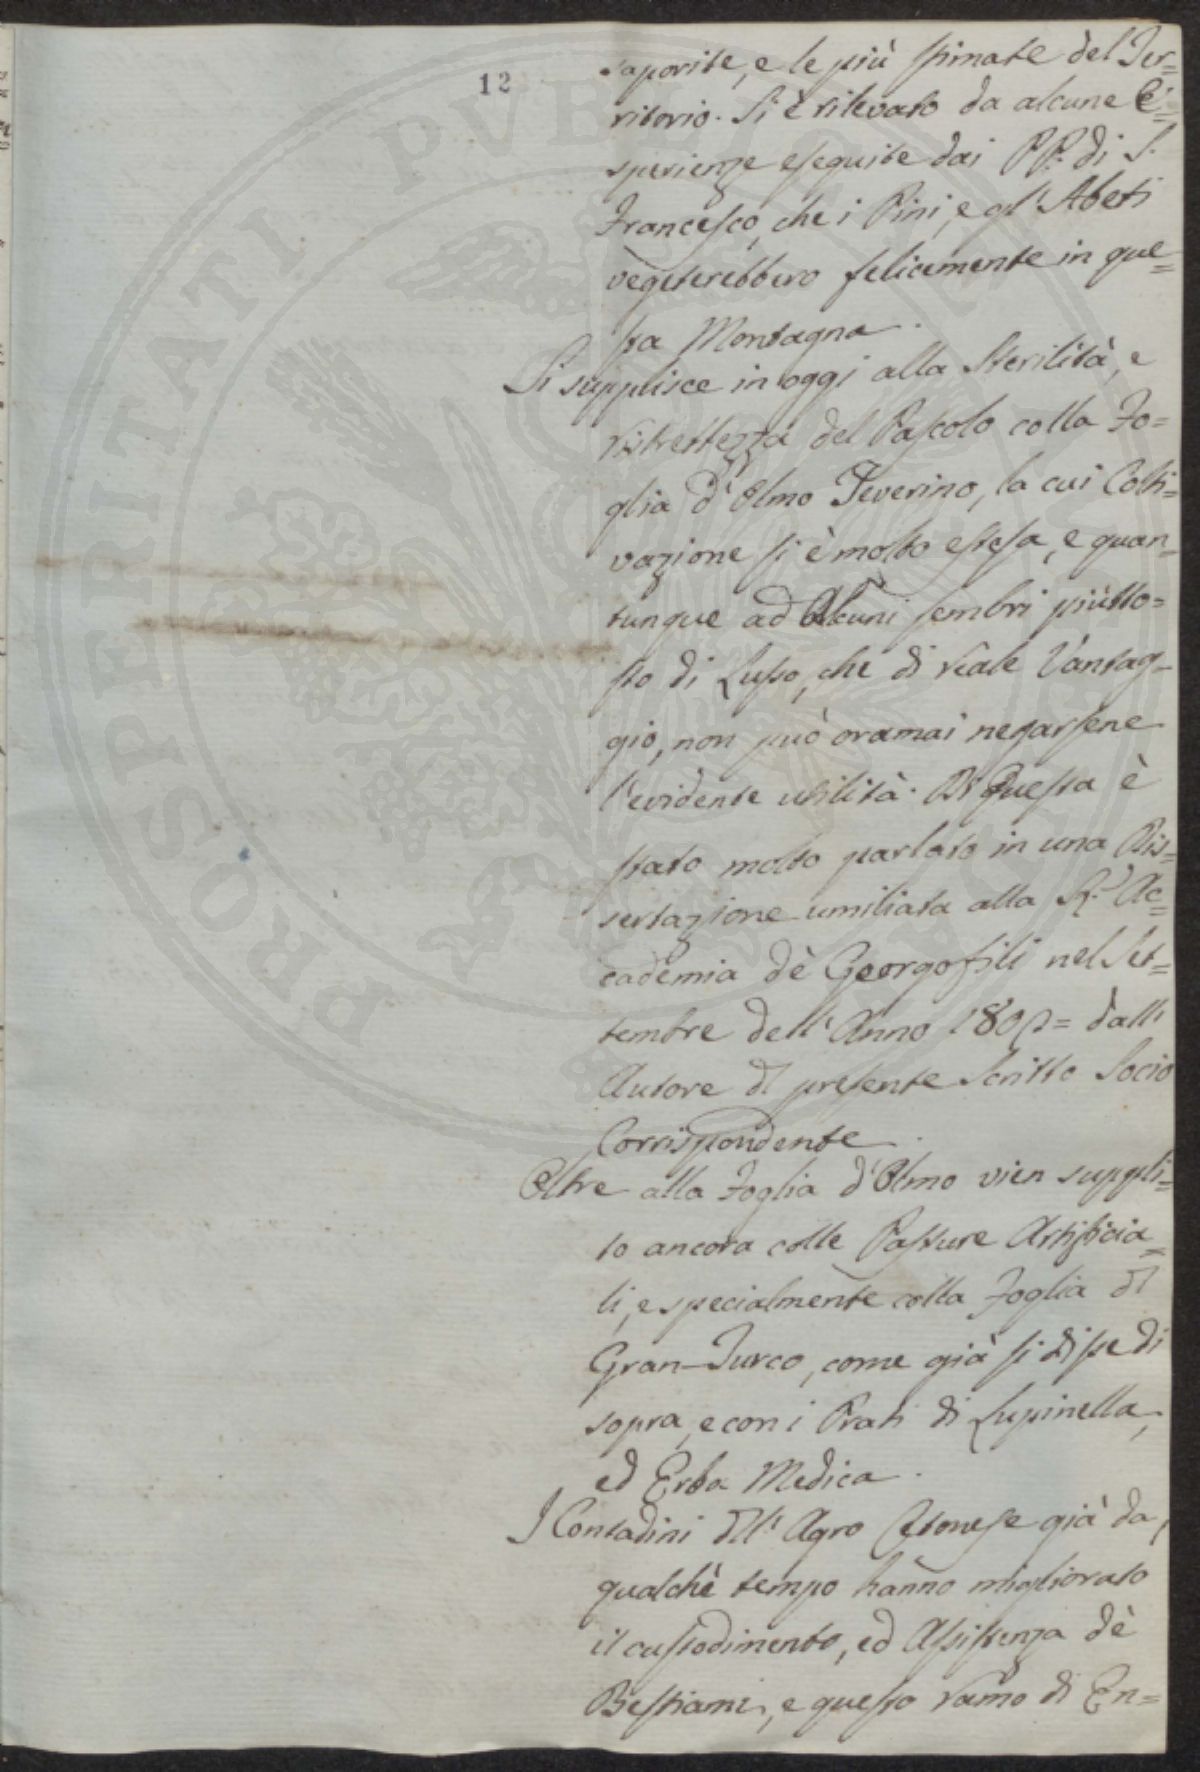 12
saporite, e le più stimate del Ter=
ritorio. Si è rilevato da alcune E=
sperienze eseguite dai PP. di S.
Francesco, che i Pini, e gl'Abeti
vegeterebbero felicemente in que=
sta Montagna.
Si supplisce in oggi alla Sterilità, e
ristrettezza del Pascolo colla Fo=
glia d'Olmo Teverino, la cui Colti=
vazione si è molto estesa, e quan=
tunque ad Alcuni sembri piùtto=
sto di Lusso, che di reale Vantag=
gio, non può oramai negarsene
l'evidente utilità. Di Questa è
stato molto parlato in una Dis=
sertazione umiliata alla R. Ac=
cademia dè Georgofili nel Set=
tembre dell'Anno 1802= dall'
Autore dl presente Scritto Socio
Corrispondente.
Oltre alla Foglia d'Olmo vien suppli=
to ancora colle Pasture Artificia=
li, e specialmente colla Foglia di
Gran-Turco, come già si disse di
sopra, e con i Prati di Lupinella,
ed Erba Medica.
I Contadini dll'Agro Cetonese già da
qualchè tempo hanno migliorato
il custodimento, ed Assistenza dè
Bestiami, e questo ramo di En=
PROSPERITATI PVBLICAE AVGENDAE